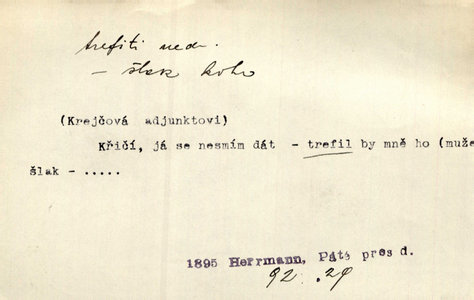 trefiti ned.
— šlak koho
(Krejčová adjunktovi)
Křičí, já se nesmím dát - trefil by mně ho (muže
šlak - .....
1895 Herrmann, Páté pres d.
92 . 29